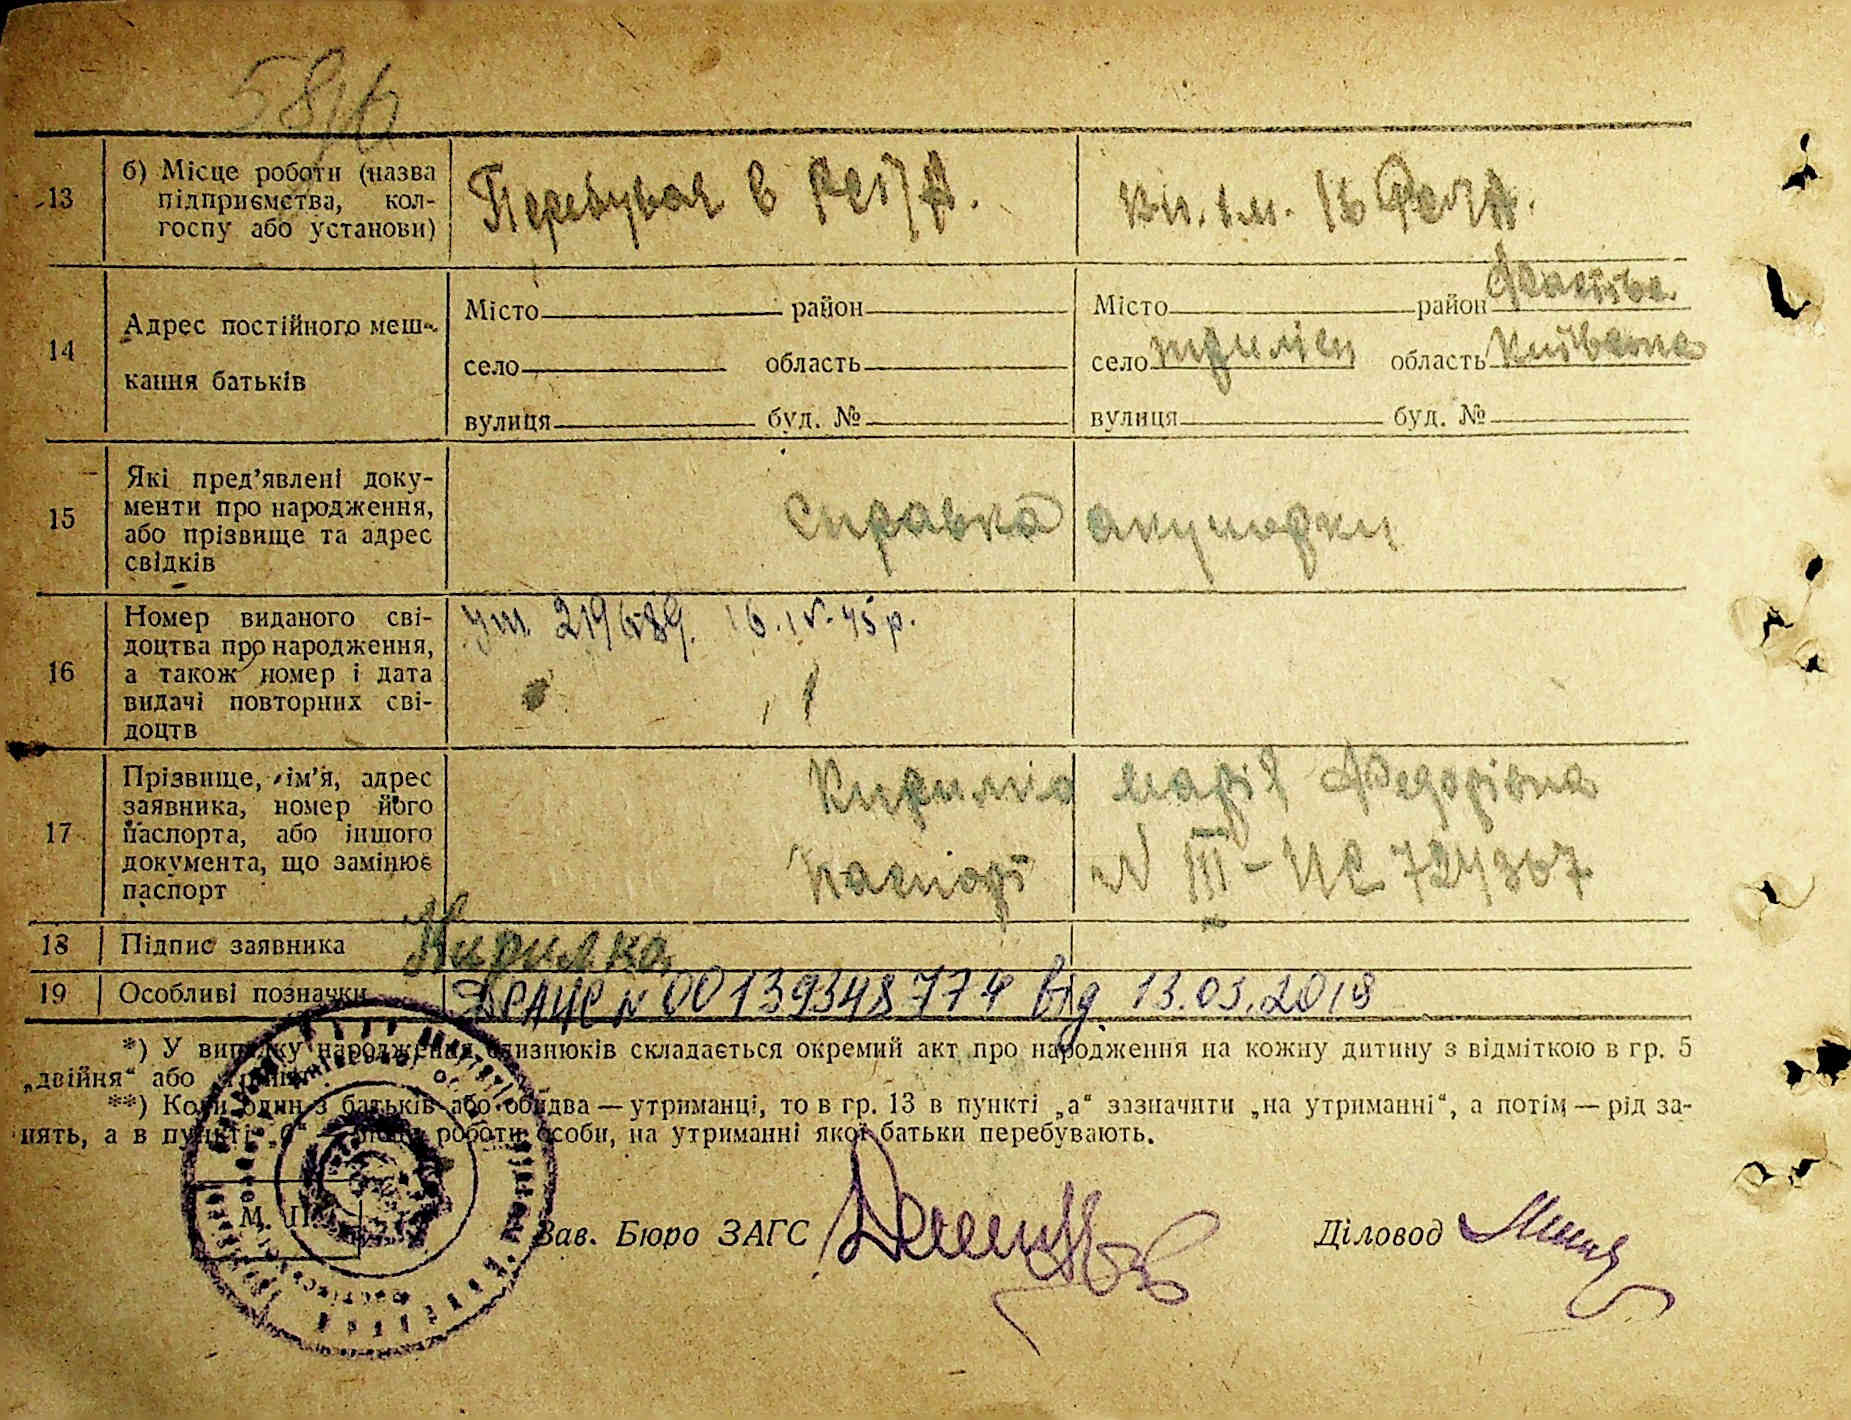 58
13
б) Місце роботи (назва
підприємства, кол-
госпу або установи)
Перебував в
14
Адрес постійного меш-
кання батьків
Місто район
село область
вулиця буд. №
Місто район
село область Київська
вулиця буд. №
15
Які пред’явлені доку-
менти про народження,
або прізвище та адрес
свідків
Справка акушорки
16
Номер виданого сві-
доцтва про народження,
а також номер і дата
видачі повторних сві-
доцтв
219689. 16.IV.45 р.
17
Прізвище, ім’я, адрес
заявника, номер його
паспорта, або іншого
документа, що замінює
паспорт
Марія Федорівна
Паспорт N III-
18 Підпис заявника Кирилка
19 Особливі позначки ДРАЦС N 00139348774 від 13.03.2018
*) У випадку народження близнюків складається окремий акт про народження на кожну дитину з відміткою в гр. 5
„двійня“ або
**) Коли один з батьків або обидва — утриманці, то в гр. 13 в пункті „а“ зазначити „на утриманні“, а потім — рід за-
нять, а в пункті „б“ — місце роботи особи, на утриманні якої батьки перебувають.
М. П.
Зав. Бюро ЗАГС
Діловод